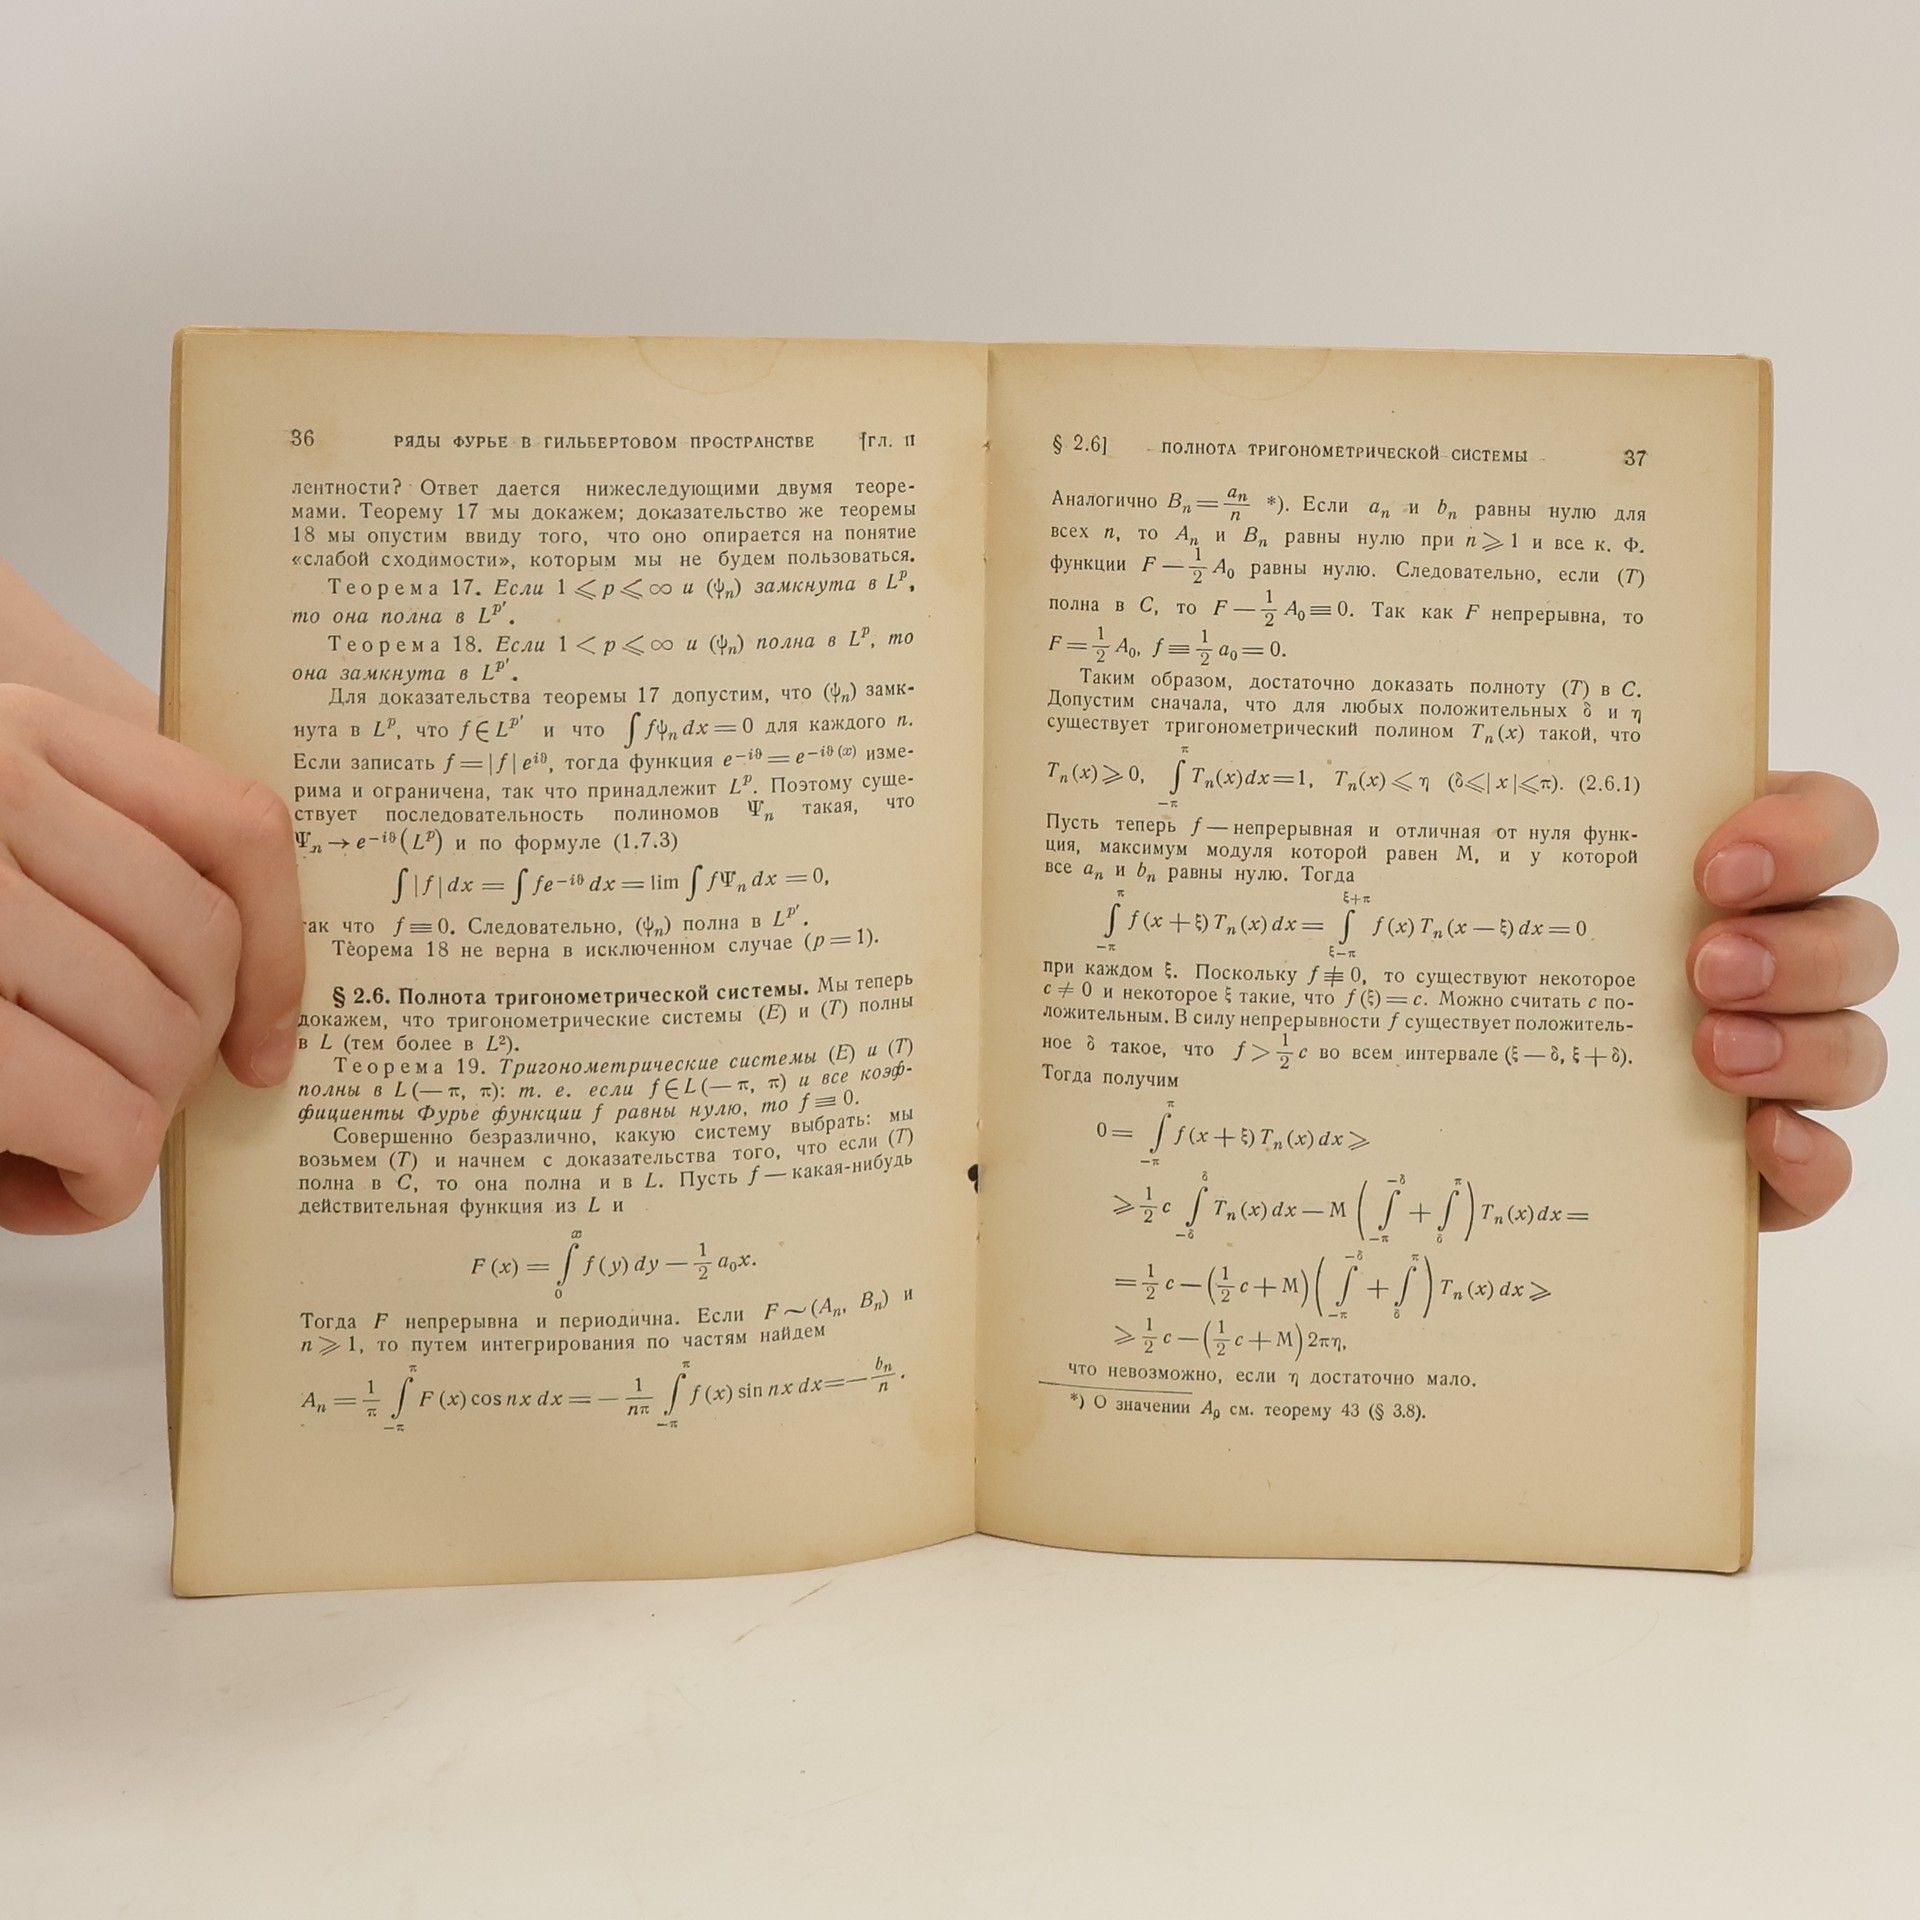 36 РЯДЫ ФУРЬЕ В ГИЛЬБЕРТОВОМ ПРОСТРАНСТВЕ [ГЛ. II
лентности? Ответ дается нижеследующими двумя теоре-
мами. Теорему 17 мы докажем; доказательство же теоремы
18 мы опустим ввиду того, что оно опирается на понятие
«слабой сходимости», которым мы не будем пользоваться.
Теорема 17. Если 1 ⩽ p ⩽ ∞ и (ψₙ) замкнута в Lᵖ,
то она полна в Lᵖ′.
Теорема 18. Если 1 < p ⩽ ∞ и (ψₙ) полна в Lᵖ, то
она замкнута в Lᵖ′.
Для доказательства теоремы 17 допустим, что (ψₙ) замк-
нута в Lᵖ, что f ∈ Lᵖ′ и что ∫ fψₙ dx = 0 для каждого n.
Если записать f = |f| e^{iϑ}, тогда функция e^{−iϑ} = e^{−iϑ(x)} изме-
рима и ограничена, так что принадлежит Lᵖ. Поэтому суще-
ствует последовательность полиномов Ψₙ такая, что
Ψₙ → e^{−iϑ} (Lᵖ) и по формуле (1.7.3)
∫ |f| dx = ∫ fe^{−iϑ} dx = lim ∫ fΨₙ dx = 0,
так что f ≡ 0. Следовательно, (ψₙ) полна в Lᵖ′.
Теорема 18 не верна в исключенном случае (p = 1).
§ 2.6. Полнота тригонометрической системы. Мы теперь
докажем, что тригонометрические системы (E) и (T) полны
в L (тем более в L²).
Теорема 19. Тригонометрические системы (E) и (T)
полны в L (— π, π): т. е. если f ∈ L (— π, π) и все коэф-
фициенты Фурье функции f равны нулю, то f ≡ 0.
Совершенно безразлично, какую систему выбрать: мы
возьмем (T) и начнем с доказательства того, что если (T)
полна в C, то она полна и в L. Пусть f — какая-нибудь
действительная функция из L и
F (x) = ∫₀ˣ f (y) dy — 1/2 a₀x.
Тогда F непрерывна и периодична. Если F ∼ (Aₙ, Bₙ) и
n ⩾ 1, то путем интегрирования по частям найдем
Aₙ = 1/π ∫_{−π}^{π} F (x) cos nx dx = — 1/nπ ∫_{−π}^{π} f (x) sin nx dx = — bₙ/n.
§ 2.6] ПОЛНОТА ТРИГОНОМЕТРИЧЕСКОЙ СИСТЕМЫ 37
Аналогично Bₙ = aₙ/n *). Если aₙ и bₙ равны нулю для
всех n, то Aₙ и Bₙ равны нулю при n ⩾ 1 и все к. Ф.
функции F — 1/2 A₀ равны нулю. Следовательно, если (T)
полна в C, то F — 1/2 A₀ ≡ 0. Так как F непрерывна, то
F = 1/2 A₀, f ≡ 1/2 a₀ = 0.
Таким образом, достаточно доказать полноту (T) в C.
Допустим сначала, что для любых положительных δ и η
существует тригонометрический полином Tₙ (x) такой, что
Tₙ (x) ⩾ 0, ∫_{−π}^{π} Tₙ (x) dx = 1, Tₙ (x) ⩽ η (δ ⩽ | x | ⩽ π). (2.6.1)
Пусть теперь f — непрерывная и отличная от нуля функ-
ция, максимум модуля которой равен M, и у которой
все aₙ и bₙ равны нулю. Тогда
∫_{−π}^{π} f (x + ξ) Tₙ (x) dx = ∫_{ξ−π}^{ξ+π} f (x) Tₙ (x — ξ) dx = 0
при каждом ξ. Поскольку f ≢ 0, то существуют некоторое
c ≠ 0 и некоторое ξ такие, что f (ξ) = c. Можно считать c по-
ложительным. В силу непрерывности f существует положитель-
ное δ такое, что f > 1/2 c во всем интервале (ξ — δ, ξ + δ).
Тогда получим
0 = ∫_{−π}^{π} f (x + ξ) Tₙ (x) dx ⩾
⩾ 1/2 c ∫_{−δ}^{δ} Tₙ (x) dx — M ( ∫_{−π}^{−δ} + ∫_{δ}^{π} ) Tₙ (x) dx =
= 1/2 c — (1/2 c + M) ( ∫_{−π}^{−δ} + ∫_{δ}^{π} ) Tₙ (x) dx ⩾
⩾ 1/2 c — (1/2 c + M) 2πη,
что невозможно, если η достаточно мало.
*) О значении A₀ см. теорему 43 (§ 3.8).